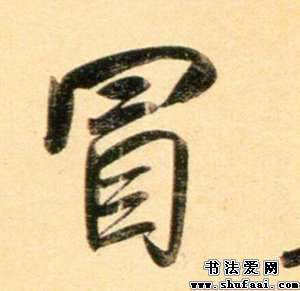 冒
书法爱网
www.shufaai.com